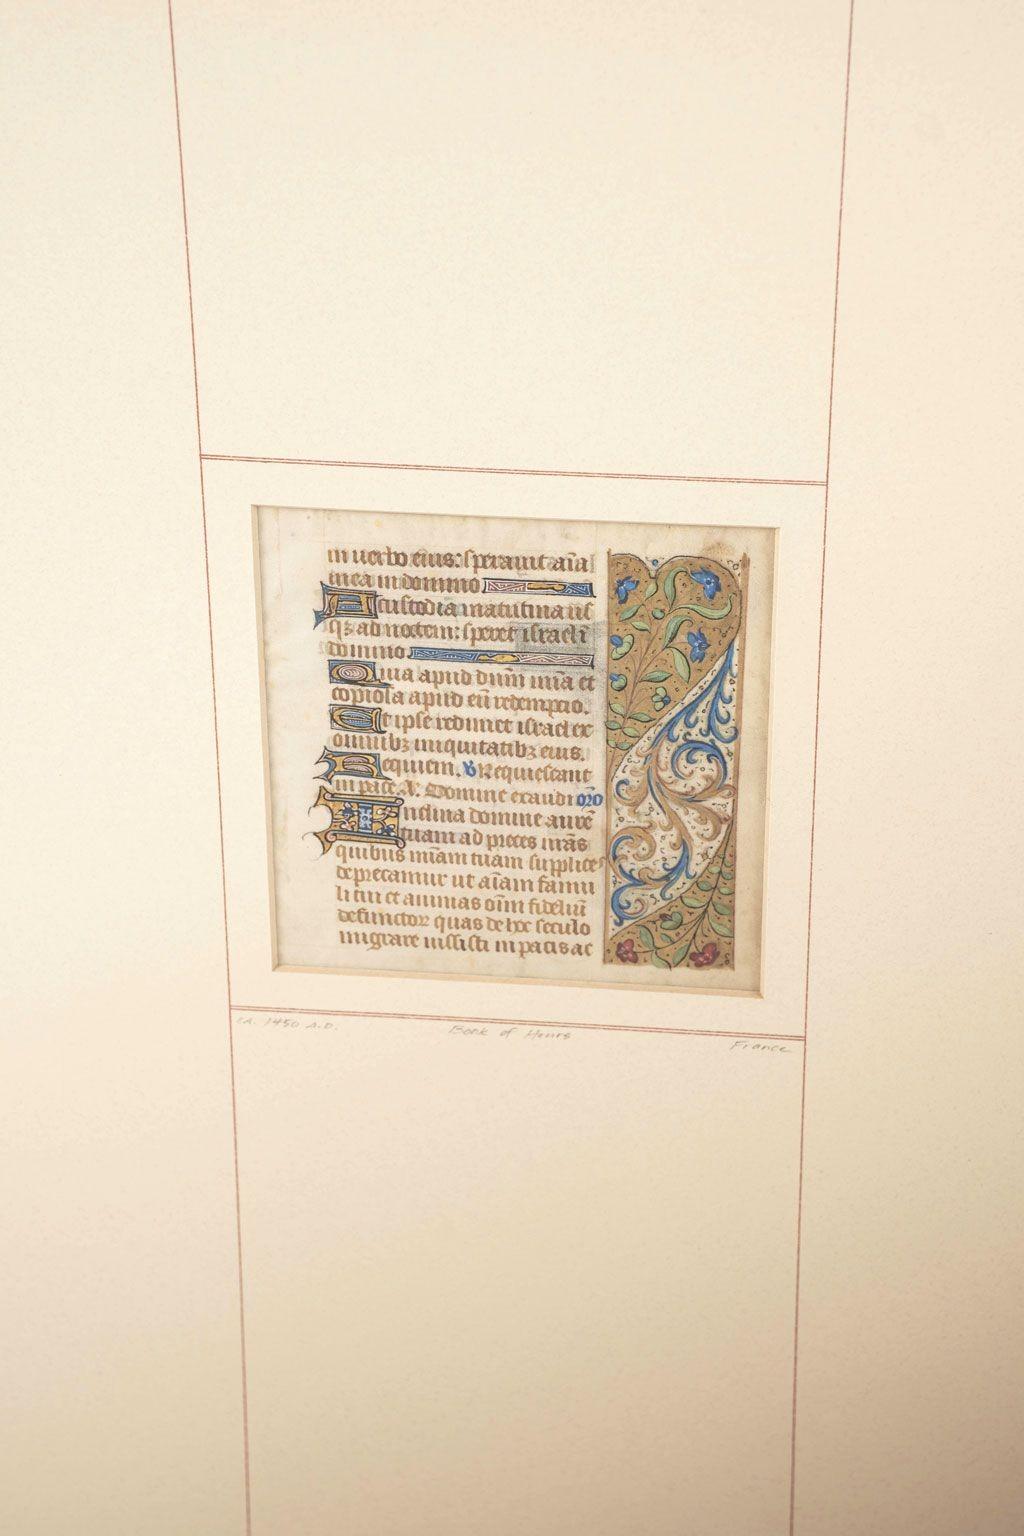 in uerbo eius: sperauit aīa
mea in domino
A custodia matutina us
qȝ ad noctem: speret israel ī
domino
Quia apud dūm mīa et
copiosa apud eū redemptio.
Et ipse redimet israel ex
omnibȝ iniquitatibȝ eius.
Requiem. V Requiescant
in pace. A. Domine exaudi oro
Inclina domine aurē
tuam ad preces nr̄as
quibus mīam tuam supplices
deprecamur ut aīam famu
li tui et animas oīm fideliū
defunctoꝝ quas de hoc seculo
migrare iussisti in pacis ac
CA. 1450 A.D.
Book of Hours
France